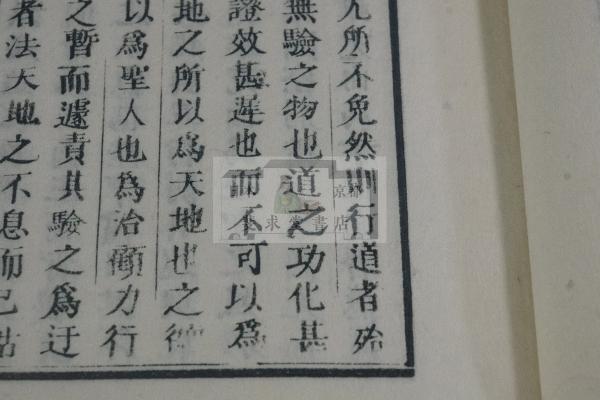 所不免然則行道者殆
無驗之物也道之功化甚
證效甚遲也而不可以爲
天地之所以爲天地也之德
以爲聖人也爲治顧力行
之暫而遽責其驗之爲迂
者法天地之不息而已
京都
求堂書店